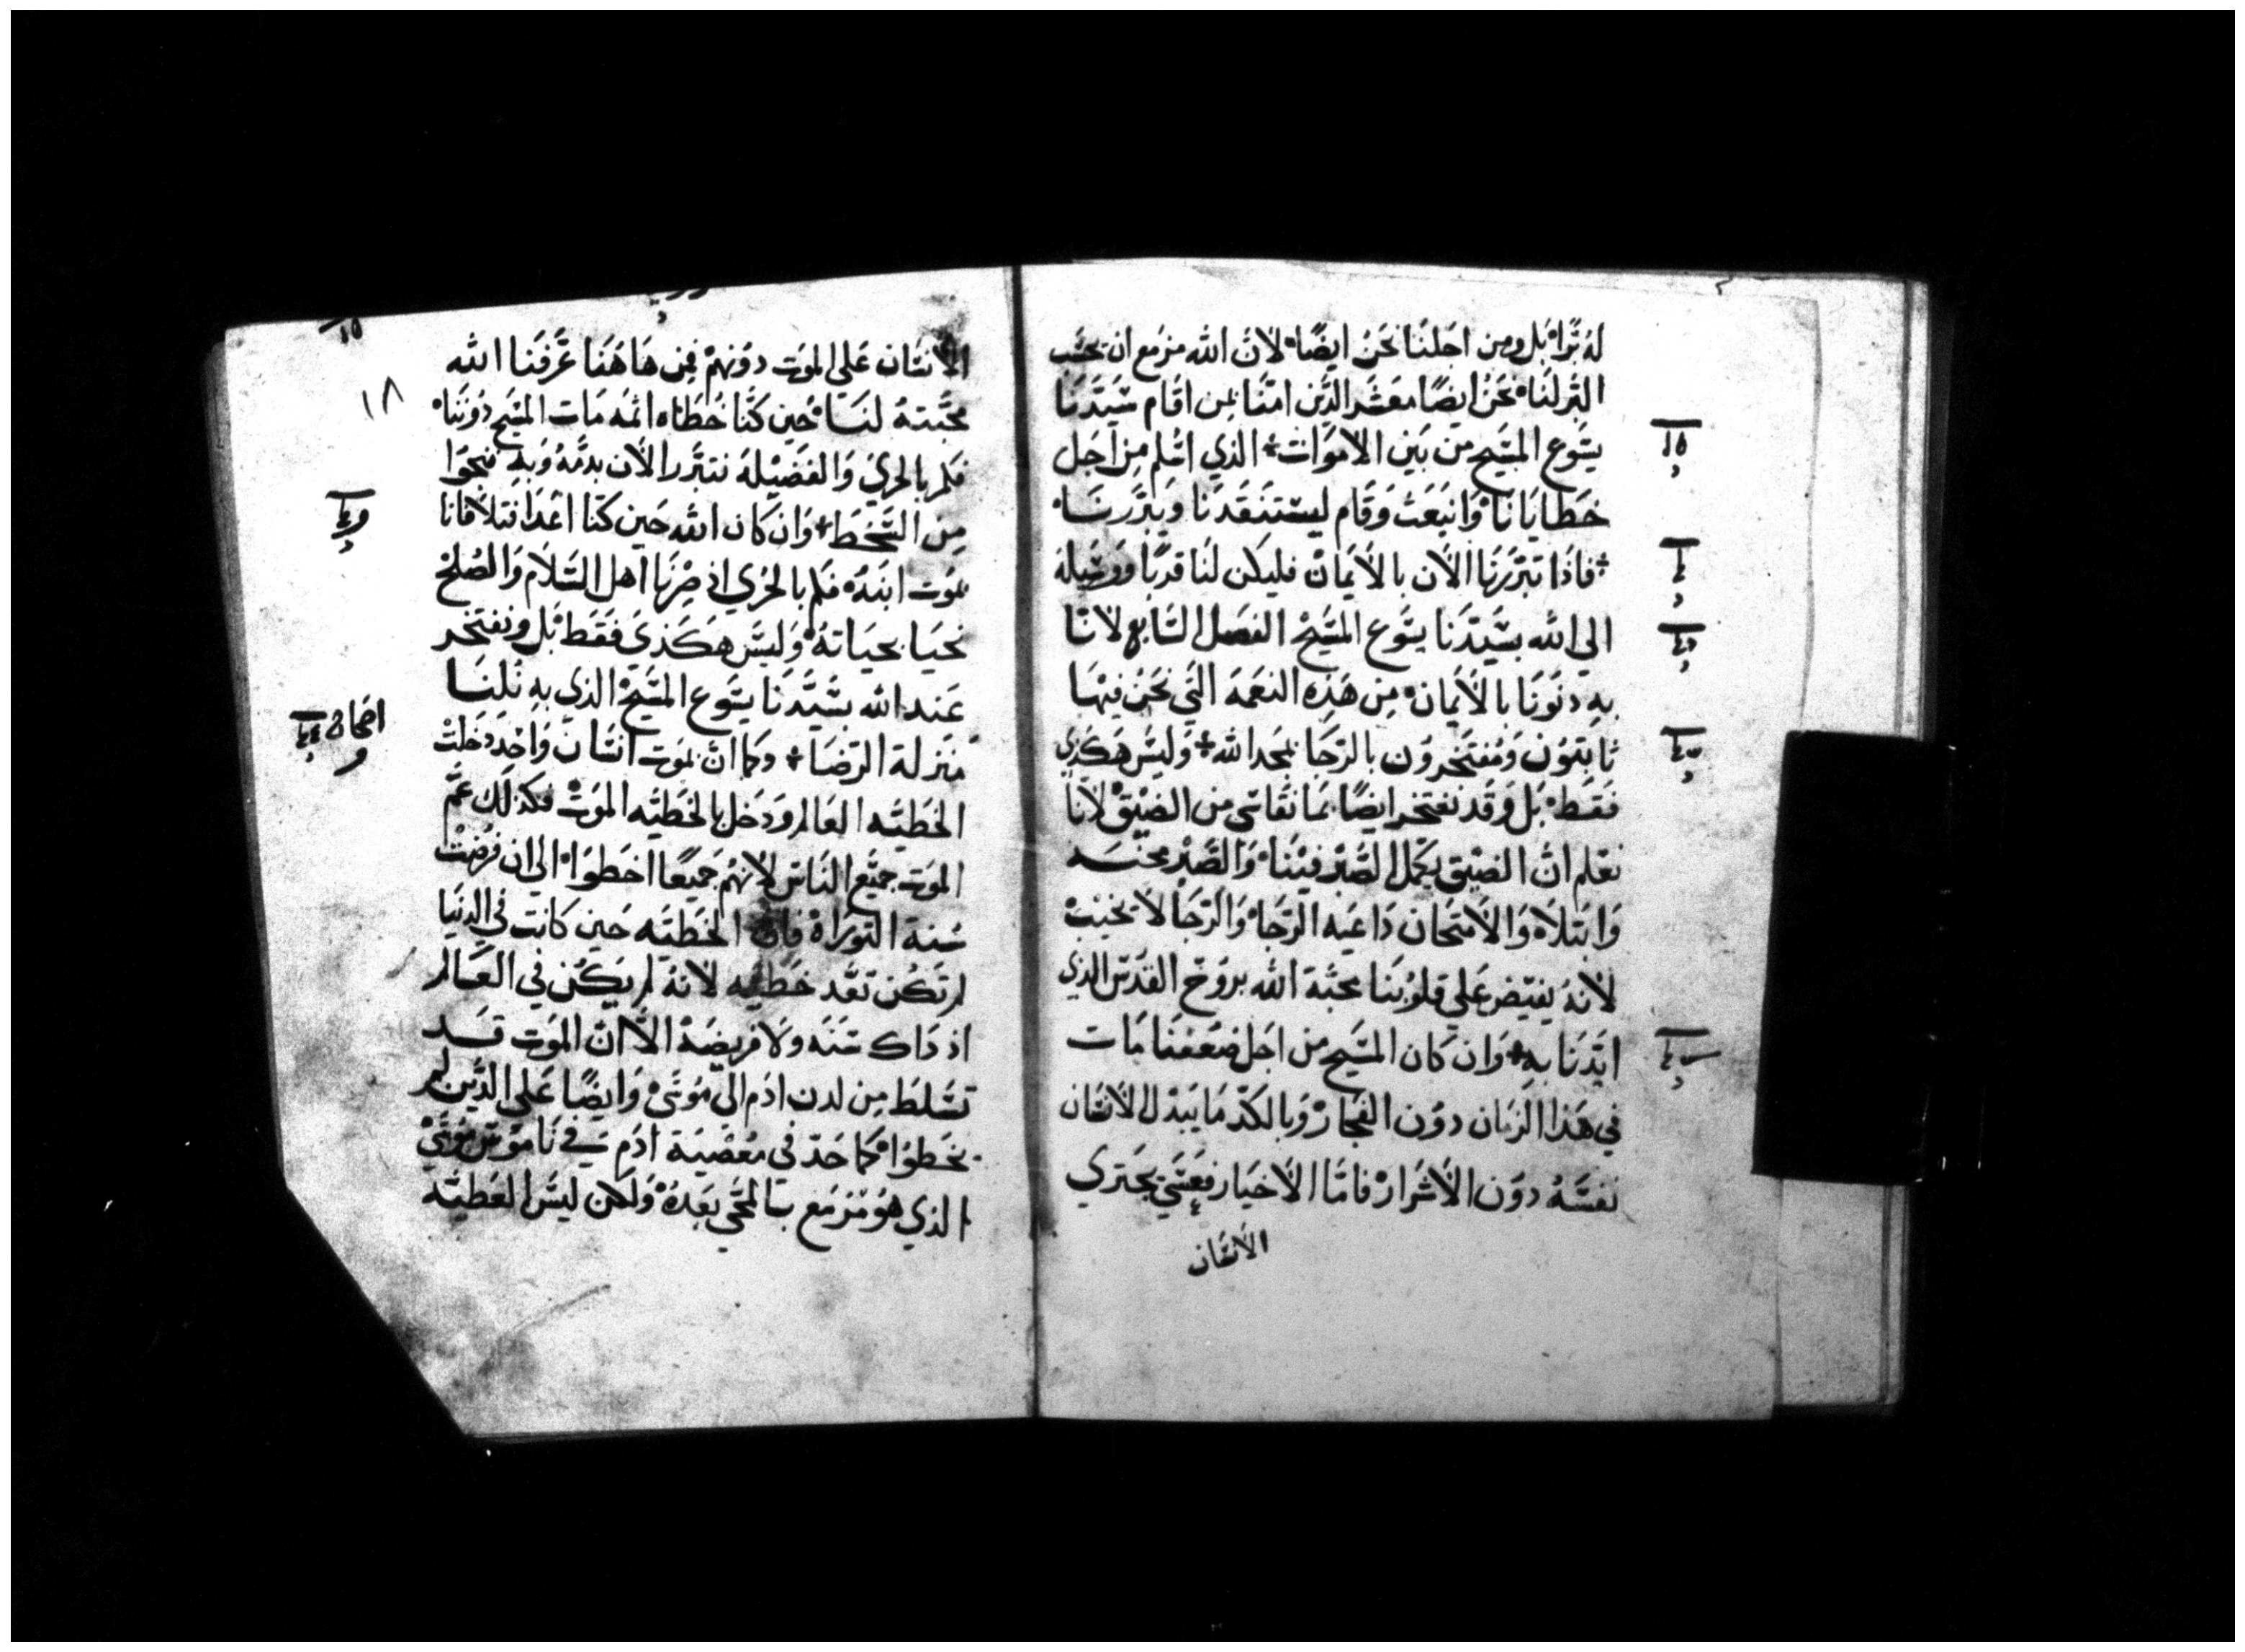 له برًا بل ومن اجلنا نحن ايضًا لان الله مزمع ان يحتسب
البر لنا نحن ايضًا معشر الذين امنا بمن اقام سيدنا
يسوع المسيح من بين الاموات الذي اسلم من اجل
خطايانا وانبعث وقام ليستنقدنا ويبررنا
فاذا تبررنا الان بالايمان فليكن لنا قربًا ووسيله
الي الله بسيدنا يسوع المسيح الفصل السابع لاننا
به دنونا بالايمان من هذه النعمه التي نحن فيها
ثابتون ومفتخرون بالرجا بمجد الله وليس هكذي
فقط بل وقد نفتخر ايضًا بما نقاسي من الضيق لانا
نعلم ان الضيق يكمل الصبر فينا والصبر محنه
وابتلاه والامتحان داعيه الرجا والرجا لا يخيب
لانه يفيض علي قلوبنا محبة الله بروح القدس الذي
ايدنا به وان كان المسيح من اجل ضعفنا مات
في هذا الزمان دون الفجار وبالكد ما يبدل الانسان
نفسه دون الاشرار فاما الاخيار فعسي يجتري
الانسان
الانسان علي الموت دونهم فمن هاهنا عرفنا الله
محبته لنا حين كنا خطاه اثمه مات المسيح دوننا
فكم بالحري والفضيله نتبرر الان بدمه وبه ننجوا
من السخط وان كان الله حين كنا اعدا فتلافانا
بموت ابنه فكم بالحري اذ صرنا اهل السلام والصلح
نحيا بحياته وليس هكذي فقط بل ونفتخر
عند الله بسيدنا يسوع المسيح الذي به نلنا
منزلة الرضا وكما ان بموت انسان واحد دخلت
الخطيه العالم ودخل بالخطيه الموت فكذلك عم
الموت جميع الناس لانهم جميعًا اخطوا الي ان فرضت
سنة التوراه فان الخطيه حين كانت في الدنيا
لم تكن تعد خطيه لانه لم يكن في العالم
اذ ذاك سنه ولا فريضة الا ان الموت قد
تسلط من لدن ادم الي موسي وايضًا علي الذين لم
يخطوا كما حد في معصية ادم في ناموس موسي
الذي هو مزمع بالمجي بعده ولكن ليس العطيه
١٨